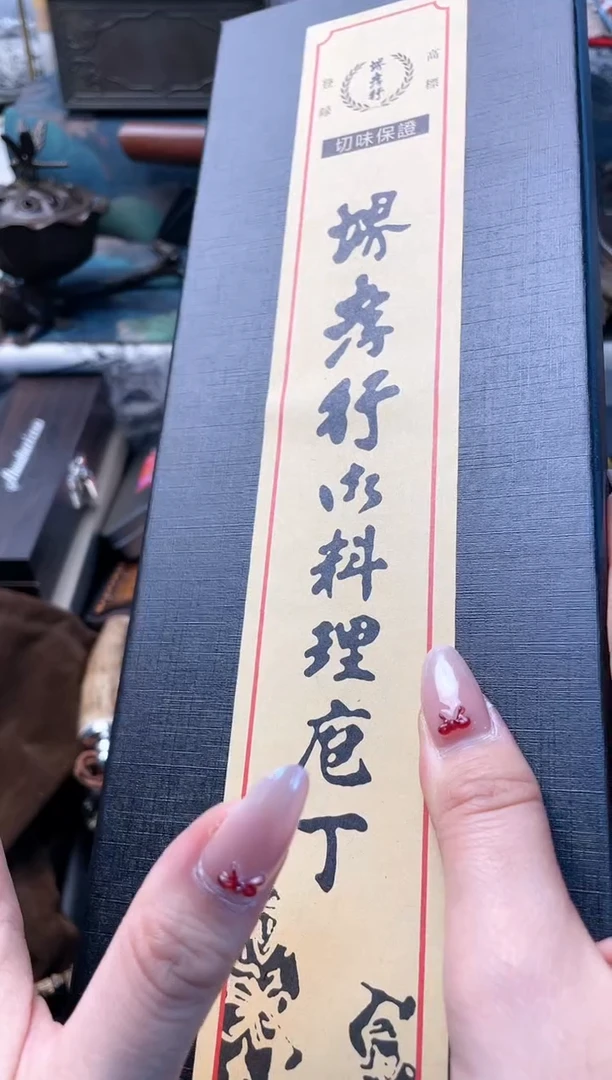 高標
登録
堺孝行
切味保證
堺孝行御料理庖丁